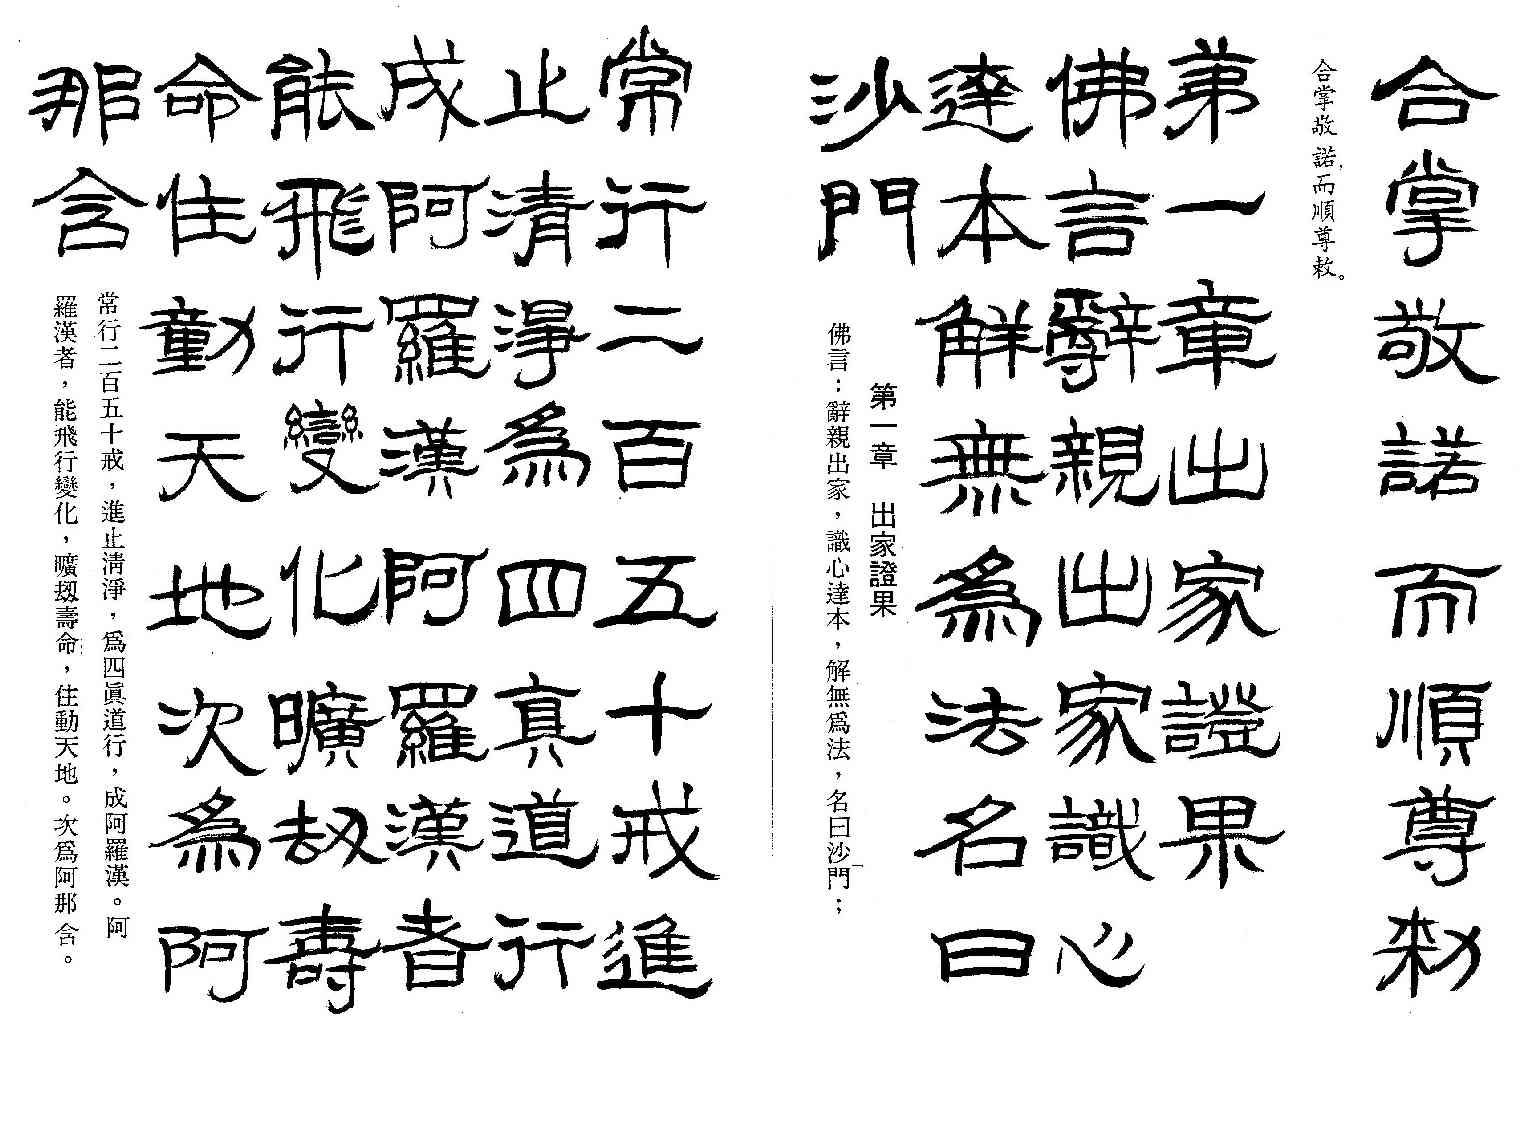 合掌敬諾而順尊敕
合掌敬諾，而順尊敕。
第一章出家證果
佛言辭親出家識心
達本解無為法名曰
沙門
第一章　出家證果
佛言：辭親出家，識心達本，解無爲法，名曰沙門；
常行二百五十戒進
止清淨為四真道行
成阿羅漢阿羅漢者
能飛行變化曠劫壽
命住動天地次為阿
那含
常行二百五十戒，進止淸淨，爲四眞道行，成阿羅漢。阿
羅漢者，能飛行變化，曠劫壽命，住動天地。次爲阿那含。